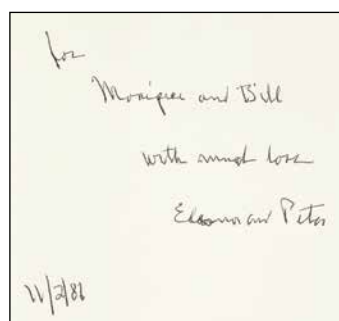 for
and Bill
with much love
Eleanor and Peter
11/2/86